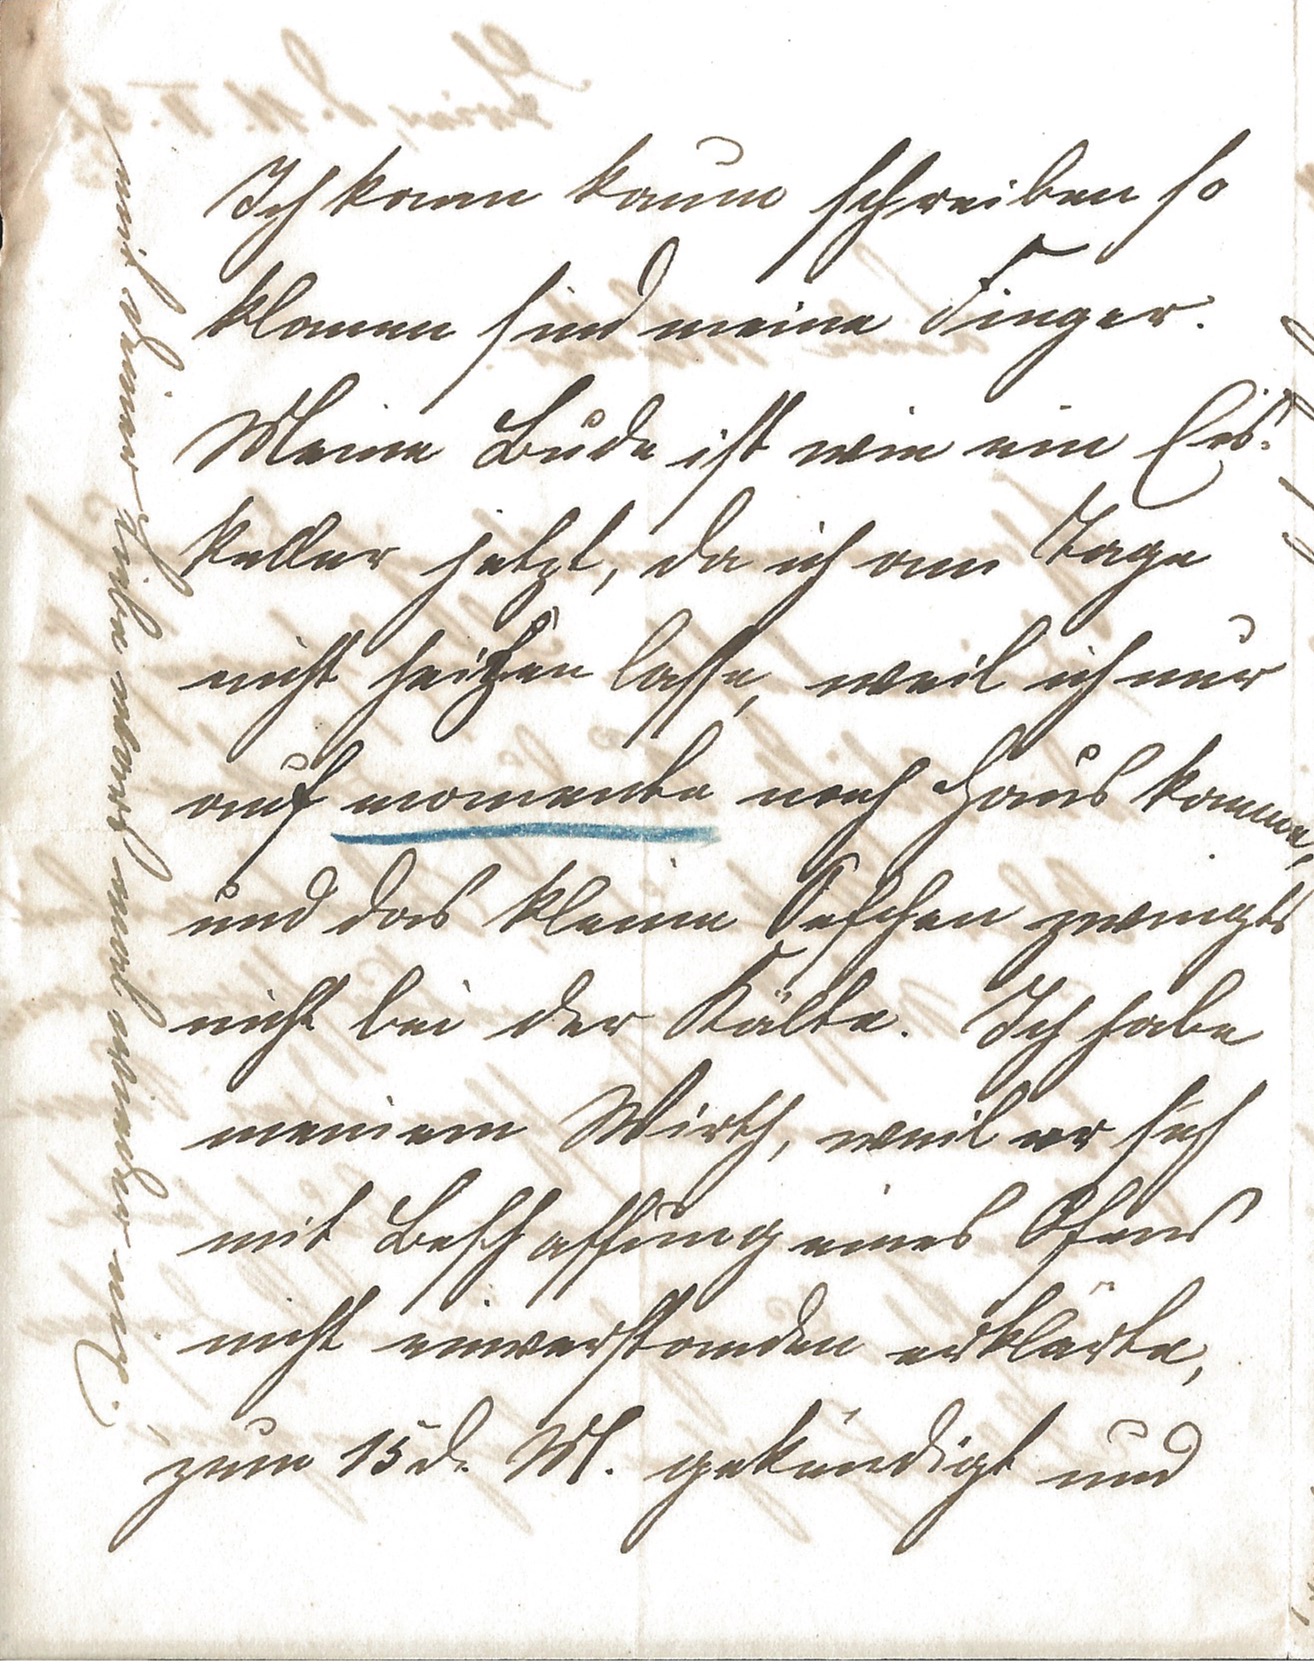 Ich kann kaum schreiben so
klamm sind meine Finger.
Meine Bude ist wie ein Eis-
keller jetzt, da ich am Tage
nicht heitzen lasse, weil ich nur
auf momente nach Haus komme,
und das kleine Oefchen zwingts
nicht bei der Kälte. Ich habe
meinem Wirth, weil er sich
mit Beschaffung eines Ofens
nicht einverstanden erklärte,
zum 15 d. M. gekündigt und
mit Deiner Liebe